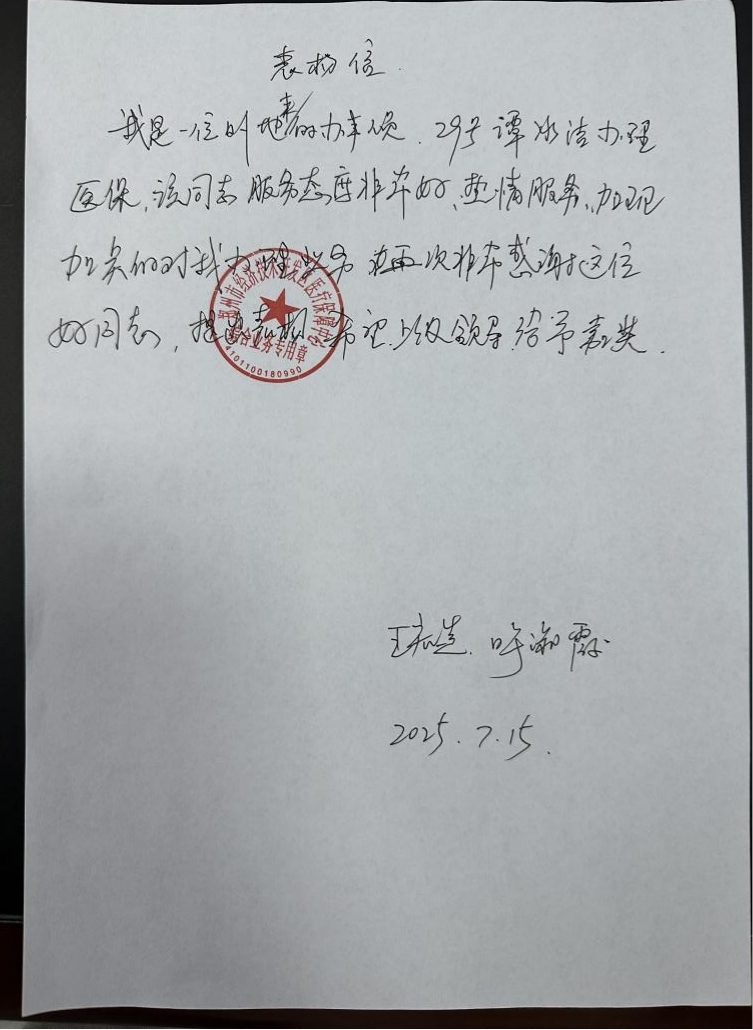 表扬信.
我是一位外地来的办事员.29号谭冰洁办理
医保,该同志服务态度非常好、热情服务、加班
加点的对我办理业务 在再次非常感谢这位
好同志,提出表扬 书记上级领导给予表奖.
州市经济技术开发区医疗保障
业务专用章
4101100180990
王 呼淑霞
2025.7.15.